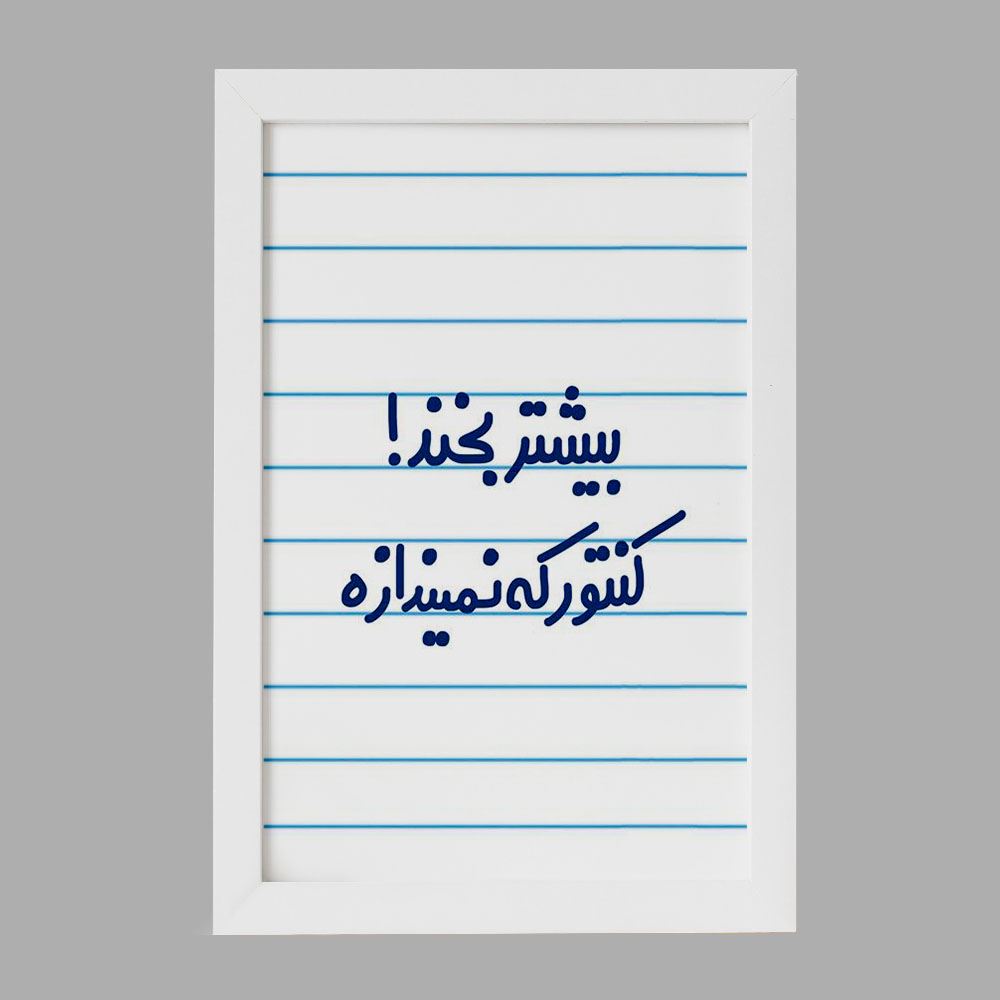 بیشتر بخند!
کنتور که نمیندازه